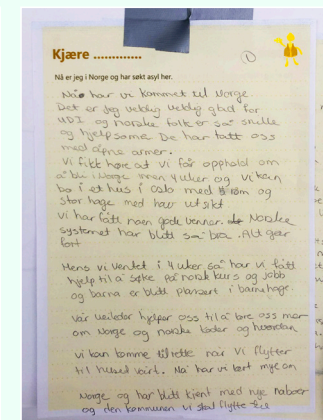 Kjære .............
①
Nå er jeg i Norge og har søkt asyl her.
Nå har vi kommet til Norge.
Det er jeg veldig veldig glad for
UDI og norske folk er så snille
og hjelpsome. De har tatt oss
med åpne armer.
Vi fikk høre at vi får opphold om
å bli i Norge innen 4 uker og vi kan
bo i et hus i Oslo med 4 rom og
stor hage med hav utsikt
vi har fått noen gode venner. Norske
systemet har blitt så bra. Alt gær
fort
Mens vi ventet i 4 uker så har vi fått
hjelp til å søke på norsk kurs og jobb
og barna er blitt plansert i barnehage.
Vår veileder hjelper oss til å lære oss mer
om Norge og norske koder og hvordan
vi kan komme til rette når vi flytter
til huset vårt. Nå har vi lært mye om
Norge og har blitt kjent med nye naboer
og den kommunen vi skal flytte til